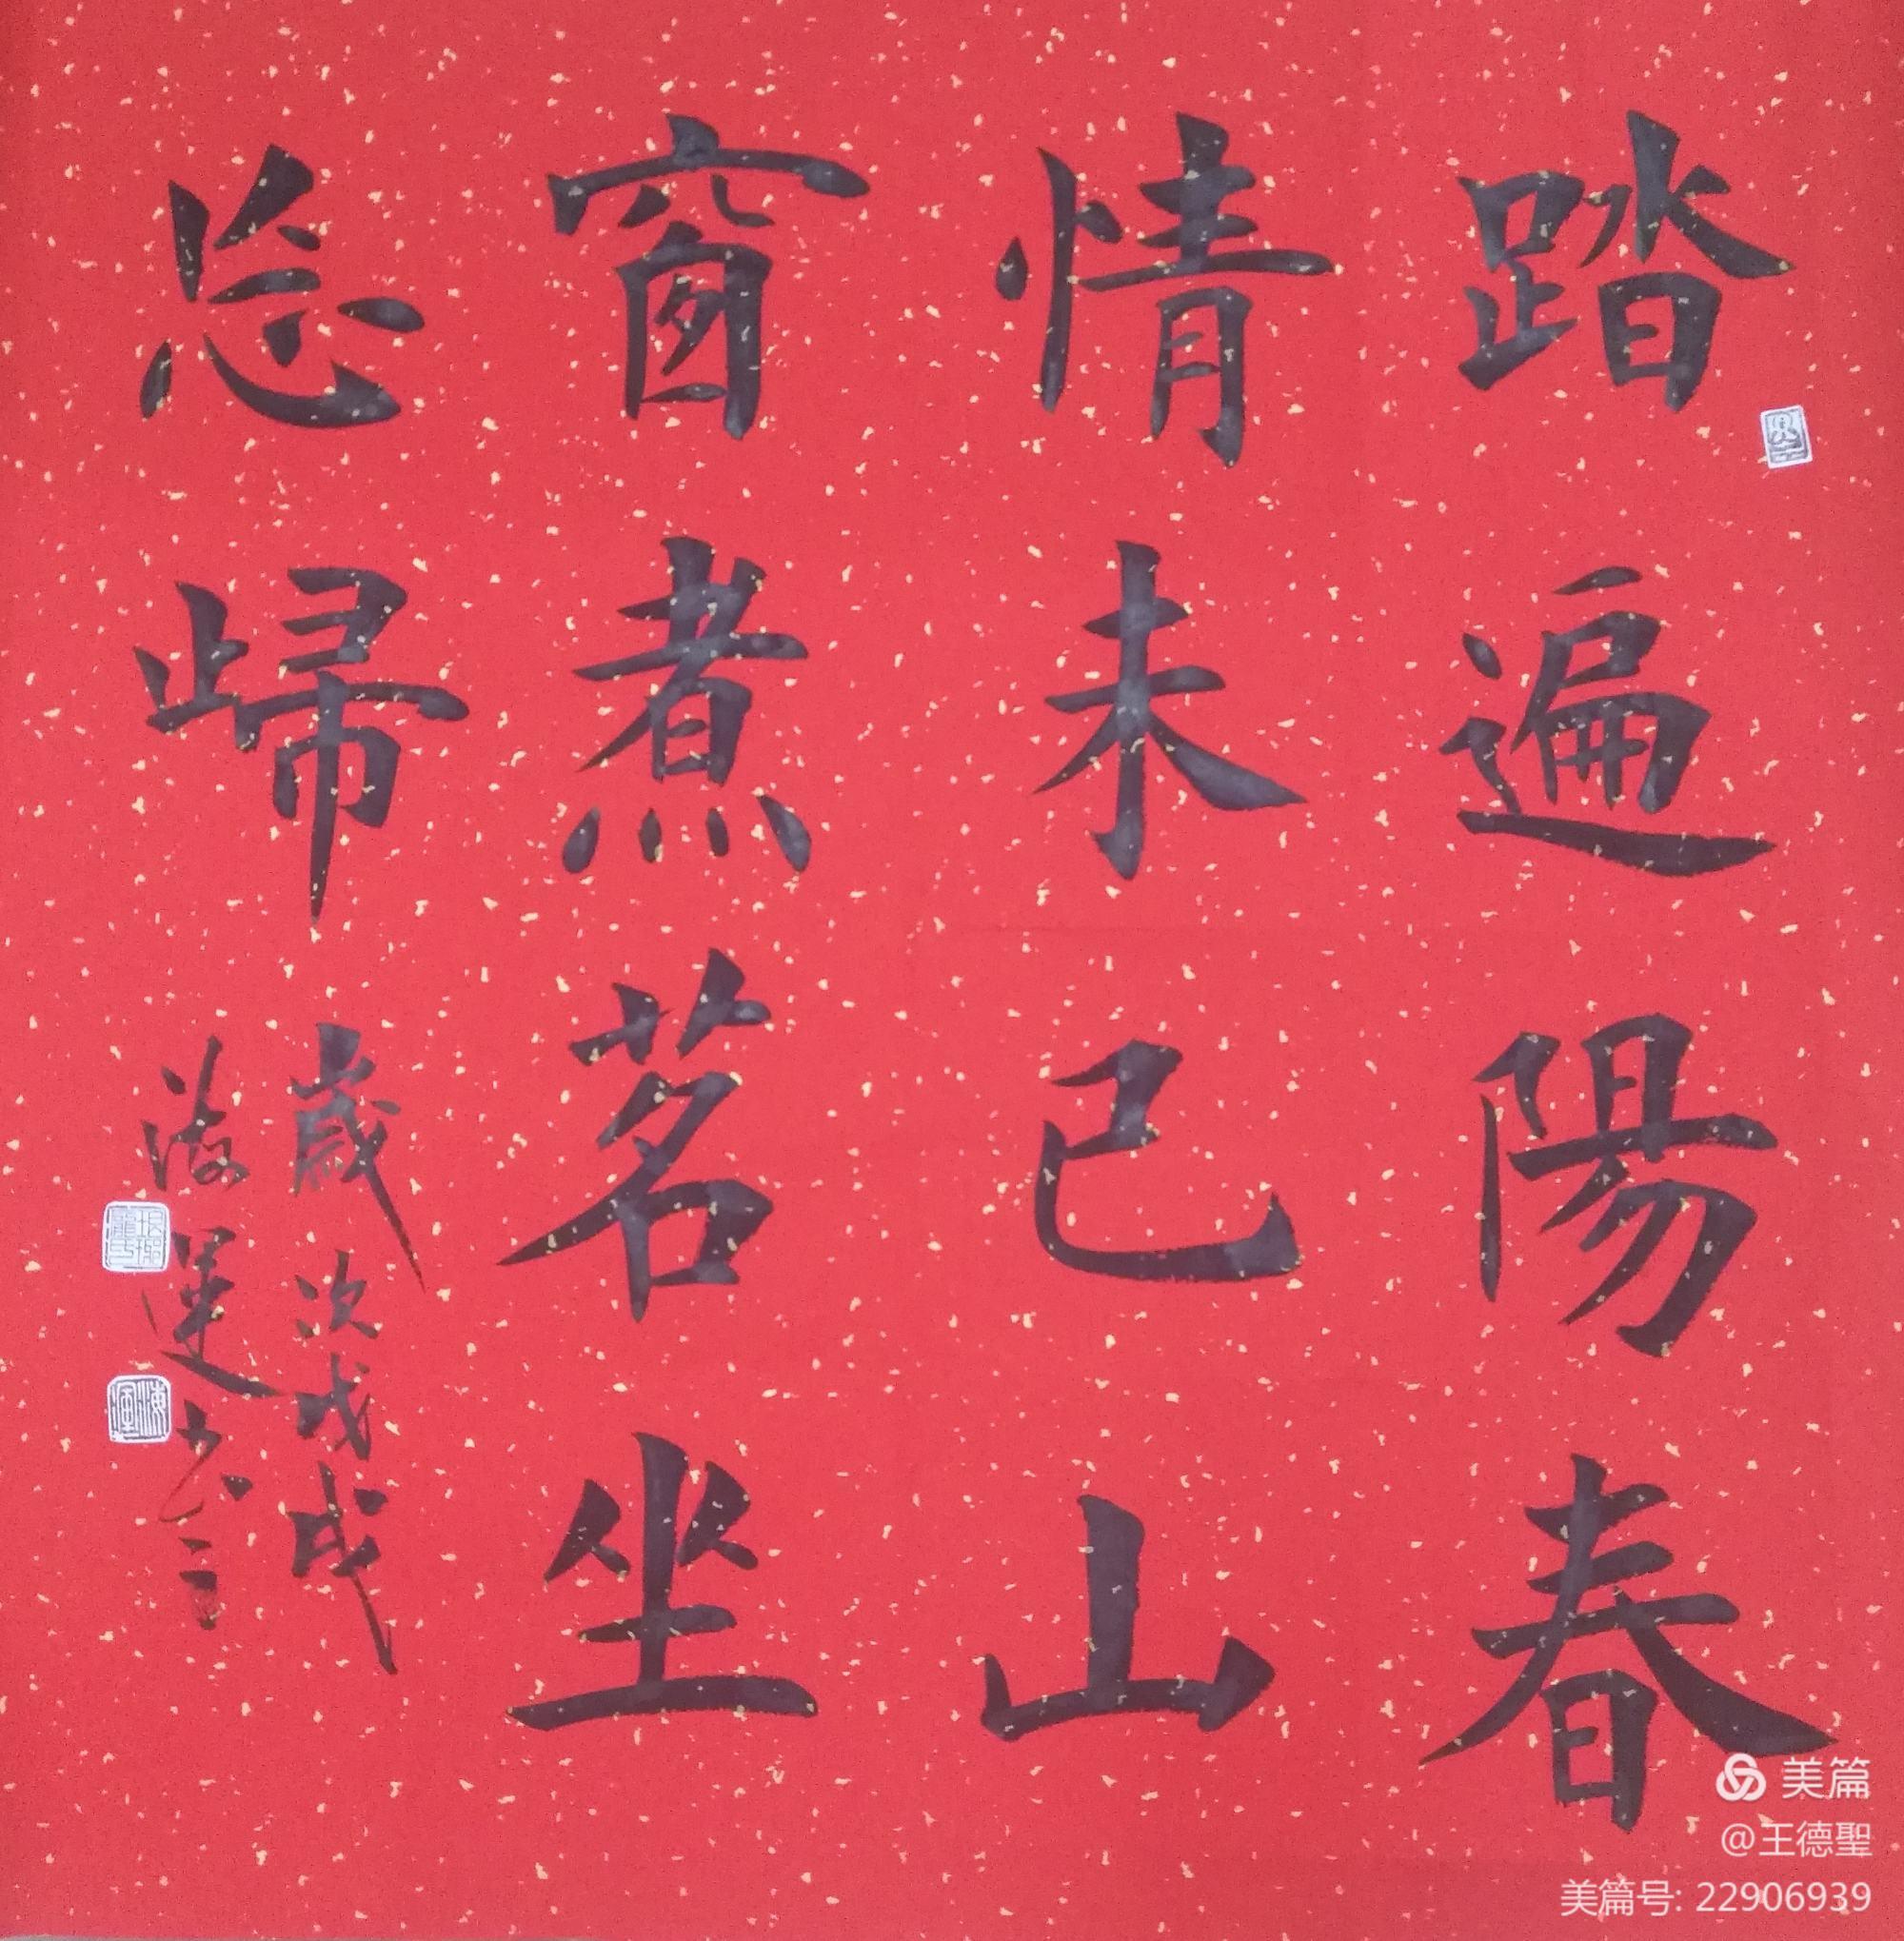 踏遍陽春
情未已山
窗煮茗坐
忘歸
歲次戊戌
海運书
美篇
@王德聖
美篇号: 22906939